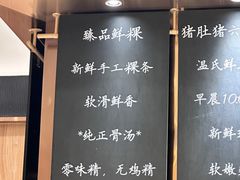 臻品鲜粿
新鲜手工粿条
软滑鲜香
*纯正骨汤*
零味精，无鸡精
猪肚猪六
温氏鲜
早晨10
新鲜
软嫩